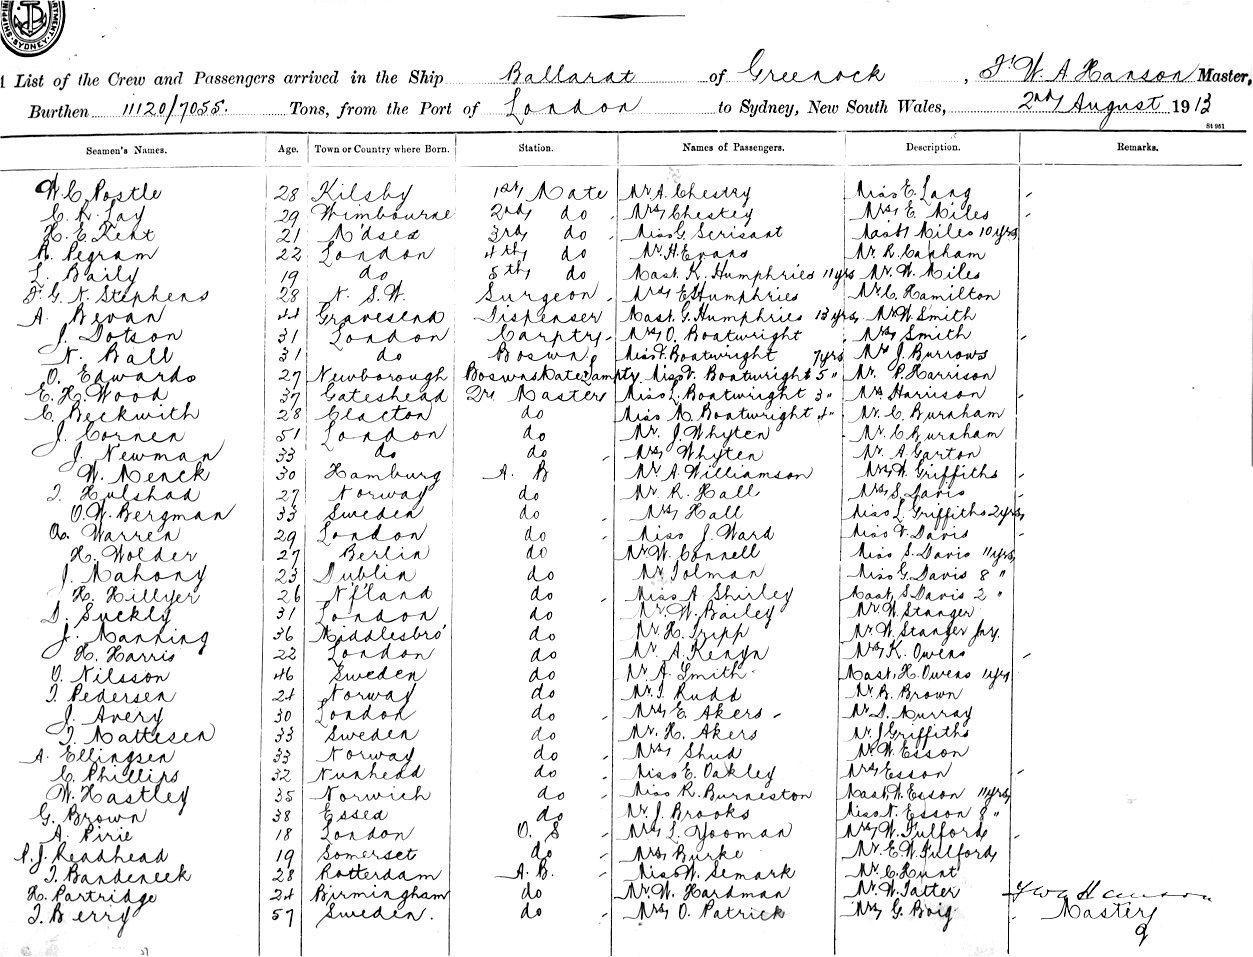 SYDNEY
List of the Crew and Passengers arrived in the Ship Ballarat of Greenock, F. W. A Hanson Master,
Burthen 11120/7055. Tons, from the Port of London to Sydney, New South Wales, 2nd August 1913
St 961
Seamen's Names. Age. Town or Country where Born. Station. Names of Passengers. Description. Remarks.
W. C. Postle 28 Kilsby 1st Mate Mr A. Chestey Miss E. Lang
C. R. Lay 29 Wimbourne 2nd do Mrs Chestey Mrs E Miles
H. E Kent 21 M'dsex 3rd do Miss G. Serisant Mast Miles 10 yrs
R. Pegram 22 London 4th do Mr H. Evans Mr. R. Capham
L. Baily 19 do 5th do Mast. K. Humphries 11 yrs Mr. W. Miles
F. G. N. Stephens 28 N. S. W. Surgeon Mrs E Humphries Mr C. Hamilton
A. Bevan 44 Gravesend Dispenser Mast. G. Humphries 13 yrs Mr W. Smith
J. Dotson 31 London Carptr Mrs O. Boatwright Mrs Smith
N. Ball 31 do Boswn Miss V. Boatwright 7 yrs Mr J. Burrows
O. Edwards 27 Newborough Boswns Mate & Lamptr Miss V. Boatwright 5 " Mr. P. Harrison
E. H. Wood 37 Gateshead Qr Master Miss L. Boatwright 3 " Mrs Harrison
C. Beckwith 28 Clacton do Miss M. Boatwright 4 " Mr. C. Burnham
J. Cornen 51 London do Mr. J. Whyten Mr. C Burnham
J. Newman 33 do do Mrs Whyten Mr. A Garton
W. Menck 30 Hamburg A. B Mr. A. Williamson Mrs W. Griffiths
T. Hulshad 27 Norway do Mr. R. Hall Mrs S. Davis
O. W. Bergman 33 Sweden do Mrs Hall Miss L. Griffiths 2 yrs
Warren 29 London do Miss J. Ward Miss V. Davis
H. Wolder 27 Berlin do Mr W. Connell Miss S. Davis 11 yrs
J. Mahony 23 Dublin do Mr Tolman Miss G. Davis 8 "
H. Hillyer 26 N'f'land do Miss A Shirley Mast. S Davis 2 "
D. Suckly 31 London do Mr W. Bailey Mr W. Stanger
J. Manning 36 Middlesbro' do Mr. H. Tripp Mr. W. Stanger Jnr.
H. Harris 22 London do Mr. A. Kenyn Mrs K. Owens
O. Nilsson 46 Sweden do Mr A. Smith Mast. H. Owens 1 yrs
T. Pedersen 24 Norway do Mr. T. Rudd Mr. B. Brown
J. Avery 30 London do Mrs E. Akers Mr. D. Murray
T. Mattesen 33 Sweden do Mr. H. Akers Mr. J Griffiths
A. Ellingsen 33 Norway do Mrs Shud Mr. W. Esson
C. Phillips 32 Nunhead do Miss E. Oakley Mrs Esson
W. Hastley 35 Norwich do Miss R. Burneston Mast. W. Esson 11 yrs
G. Brown 38 Essex do Mr. J. Brooks Miss N. Esson 8 "
A. Pirie 18 London O. S Mrs L. Yooman Mrs W. Fulford
P. J. Readhead 19 Somerset do Mrs Burke Mr. E. W. Fulford
T. Bandeneek 28 Rotterdam A. B. Miss W. Semark Mr. C. Hunt
H. Partridge 24 Birmingham do Mr. W. Hardman Mr. W. Tatter F W A Hanson
T. Berry 57 Sweden. do Mrs O. Patrick Mrs G. Boig Master